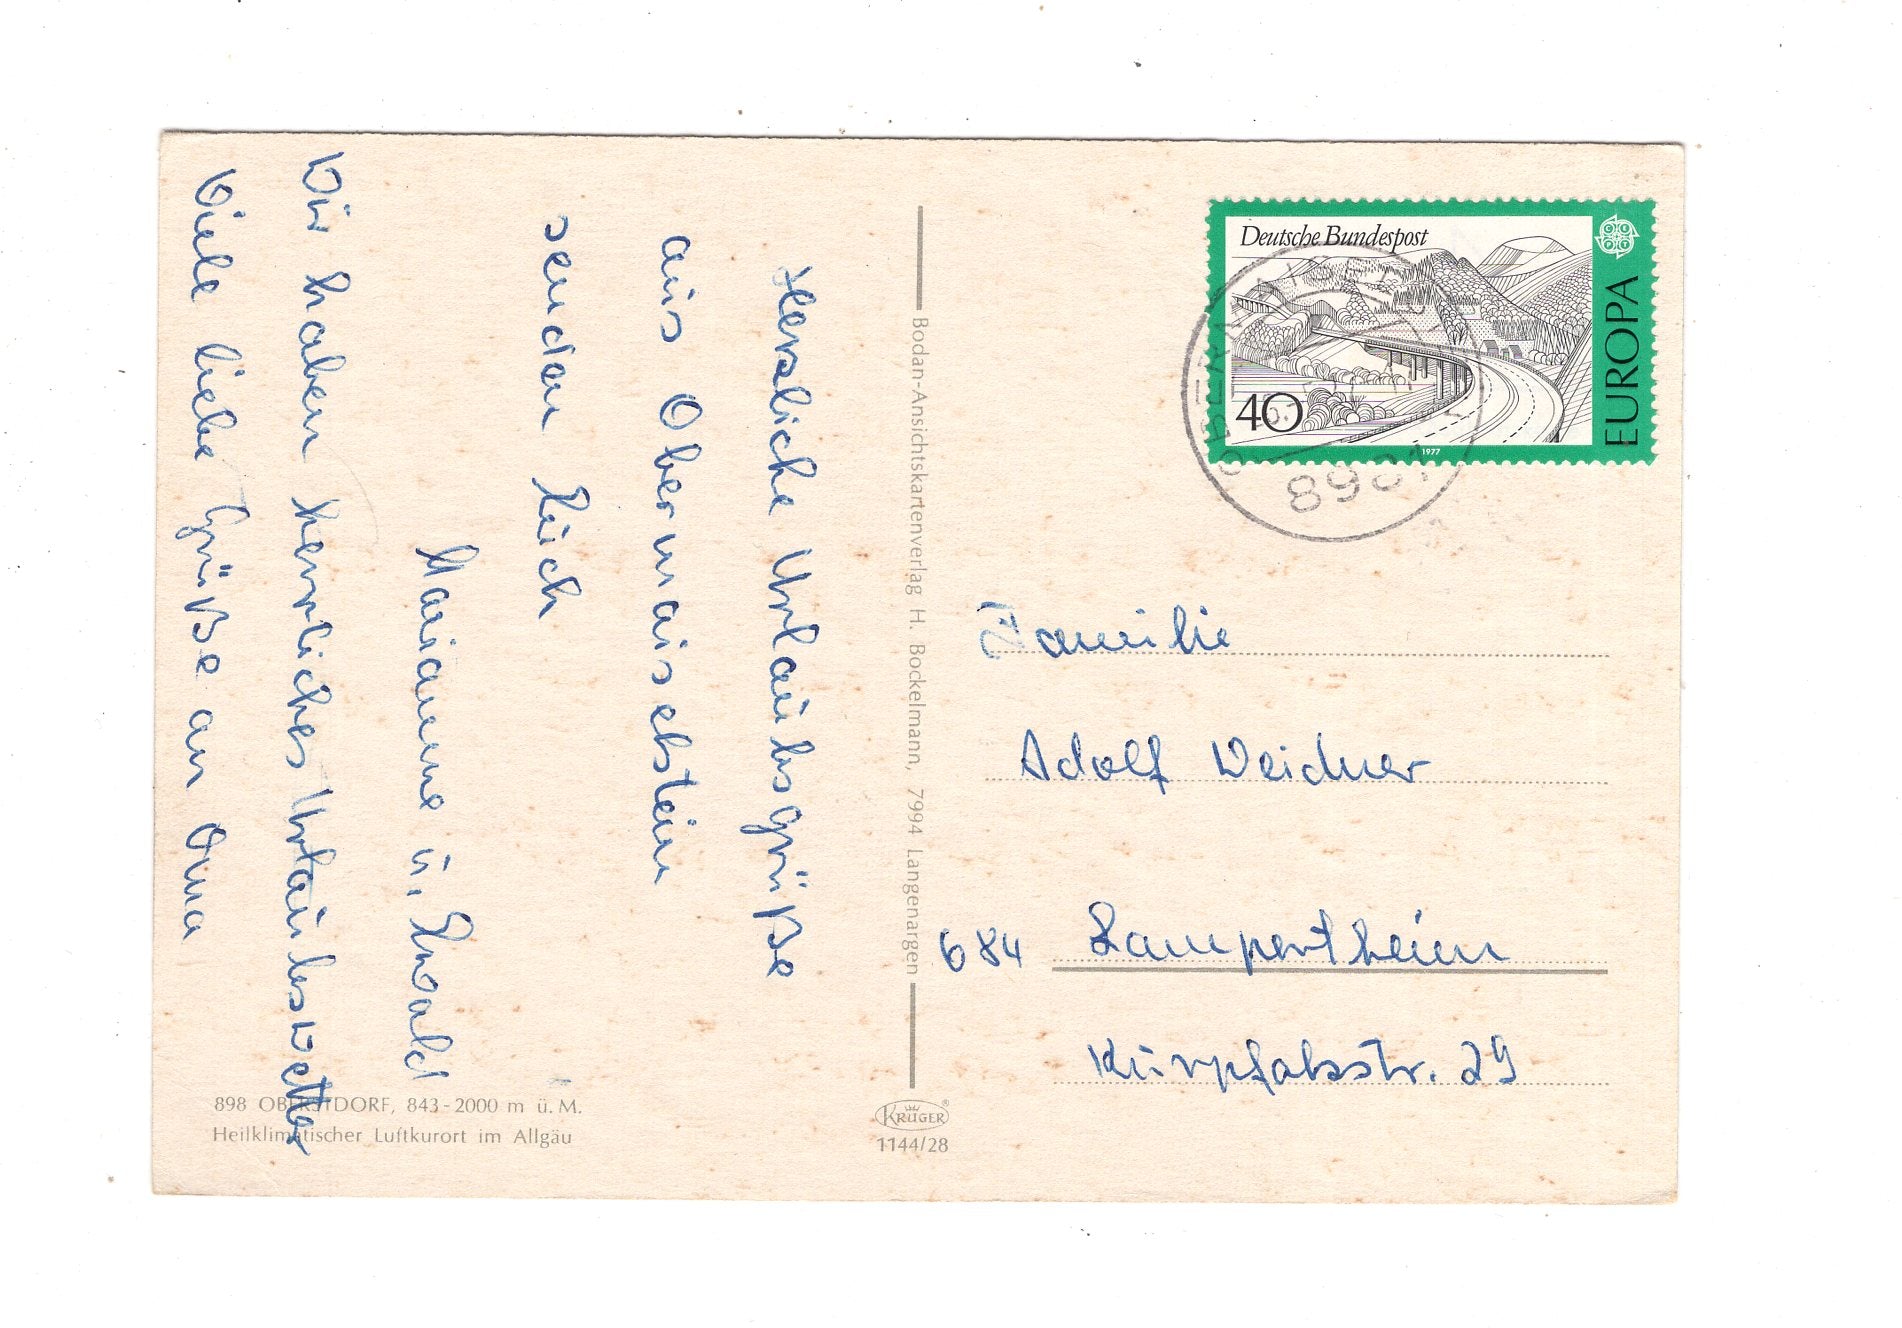 Herzliche Urlaubsgrüße
aus Obermaiselstein
senden Euch
Marianne u. Ewald
Wir haben herrliches Urlaubswetter
Viele liebe Grüße an Oma
898 OBERSTDORF, 843-2000 m ü. M.
Heilklimatischer Luftkurort im Allgäu
Bodan-Ansichtskartenverlag H. Bockelmann, 7994 Langenargen
KRÜGER®
1144/28
Deutsche Bundespost
EUROPA
40
1977
Familie
Adolf Weidner
684 Lampertheim
Kurpfalzstr. 29